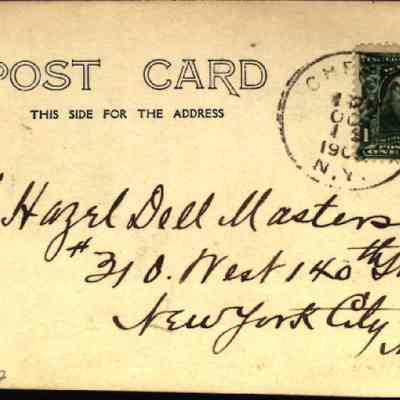 POST CARD
THIS SIDE FOR THE ADDRESS
OC
13
190
N.Y.
1
Hazel Dell Masters
#310. West 140th
New York City